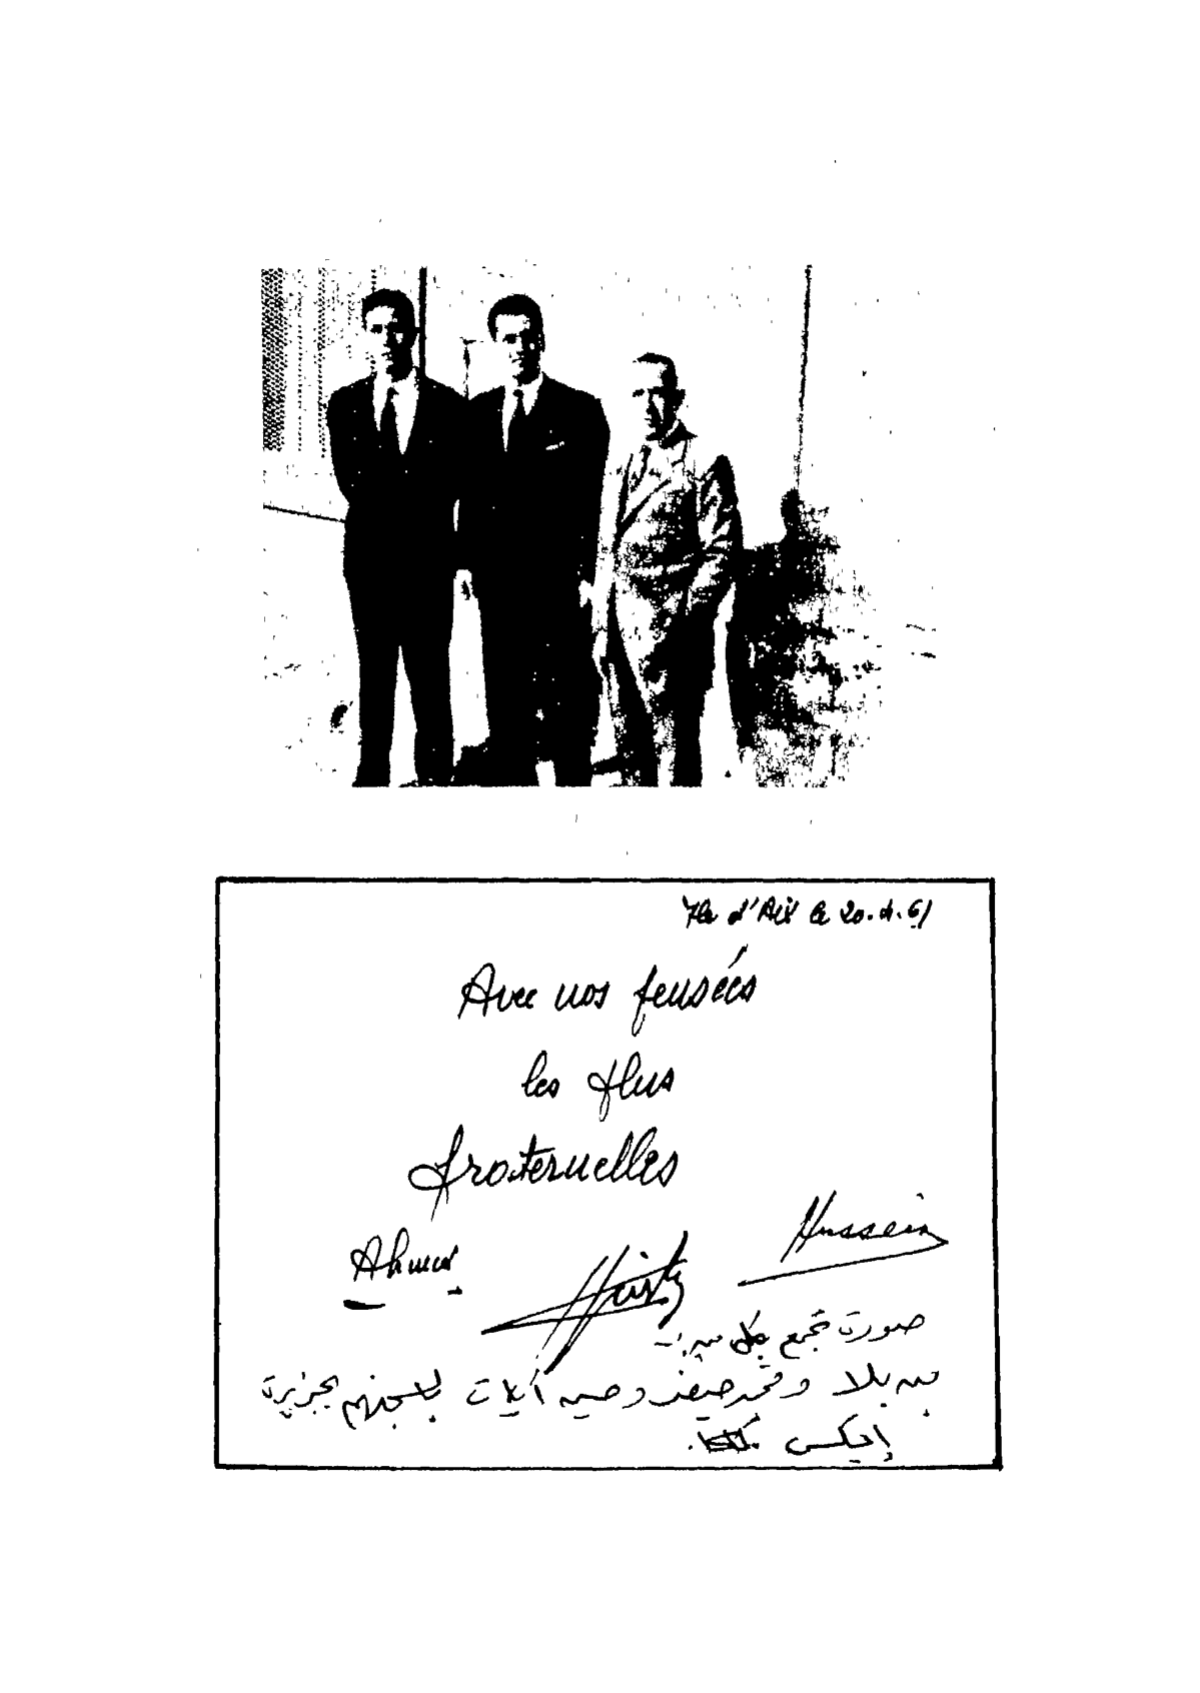 Ile d'Aix le 20.4.61
Avec nos pensées
les plus
fraternelles
Ahmed
Hussein
صورة تجمع بين :
بن بلا و محمد خيضر و حسين آيات بجزيرة
إيكس